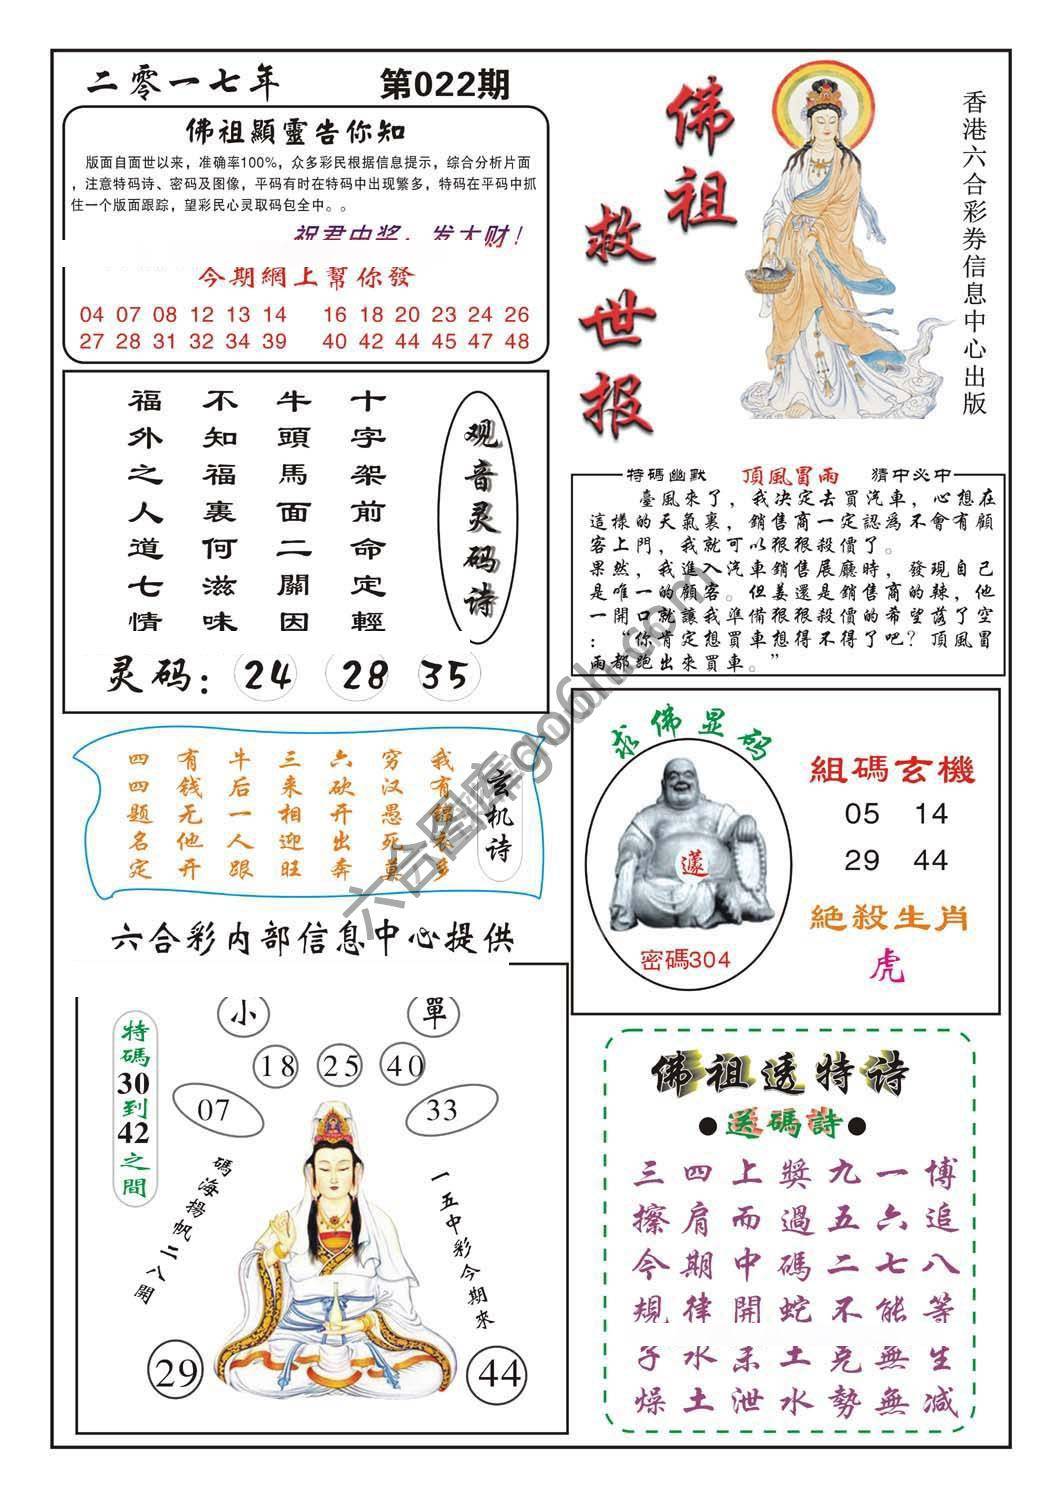 二零一七年 第022期
佛祖顯靈告你知
版面自面世以来，准确率100%，众多彩民根据信息提示，综合分析片面
，注意特码诗、密码及图像，平码有时在特码中出现繁多，特码在平码中抓
住一个版面跟踪，望彩民心灵取码包全中。。
祝君中奖，发大财！
今期網上幫你發
04 07 08 12 13 14 16 18 20 23 24 26
27 28 31 32 34 39 40 42 44 45 47 48
佛祖
救世报
香港六合彩券信息中心出版
观音灵码诗
十字架前命定輕
牛頭馬面二關因
不知福裏何滋味
福外之人道七情
灵码：24 28 35
特碼幽默 頂風冒雨 猜中必中
臺風來了，我决定去買汽車，心想在
這樣的天氣裏，銷售商一定認爲不會有顧
客上門，我就可以狠狠殺價了。
果然，我進入汽車銷售展廳時，發現自己
是唯一的顧客。但姜還是銷售商的辣，他
一開口就讓我準備狠狠殺價的希望落了空
：“你肯定想買車想得不得了吧？頂風冒
雨都跑出來買車。”
玄机诗
我有錦衣多
穷汉愚死莫
六砍开出奔
三来相迎旺
牛后一人跟
有钱无他开
四四题名定
六合彩内部信息中心提供
求佛显码
密碼304
組碼玄機
05 14
29 44
絶殺生肖
虎
小 單
18 25 40
07 33
特碼30到42之間
碼海揚帆二八開
一五中彩今期來
29 44
佛祖透特诗
●送碼詩●
三四上獎九一博
擦肩而過五六追
今期中碼二七八
規律開蛇不能等
子水末土克無生
燥土泄水勢無减
六合图库go6h.com